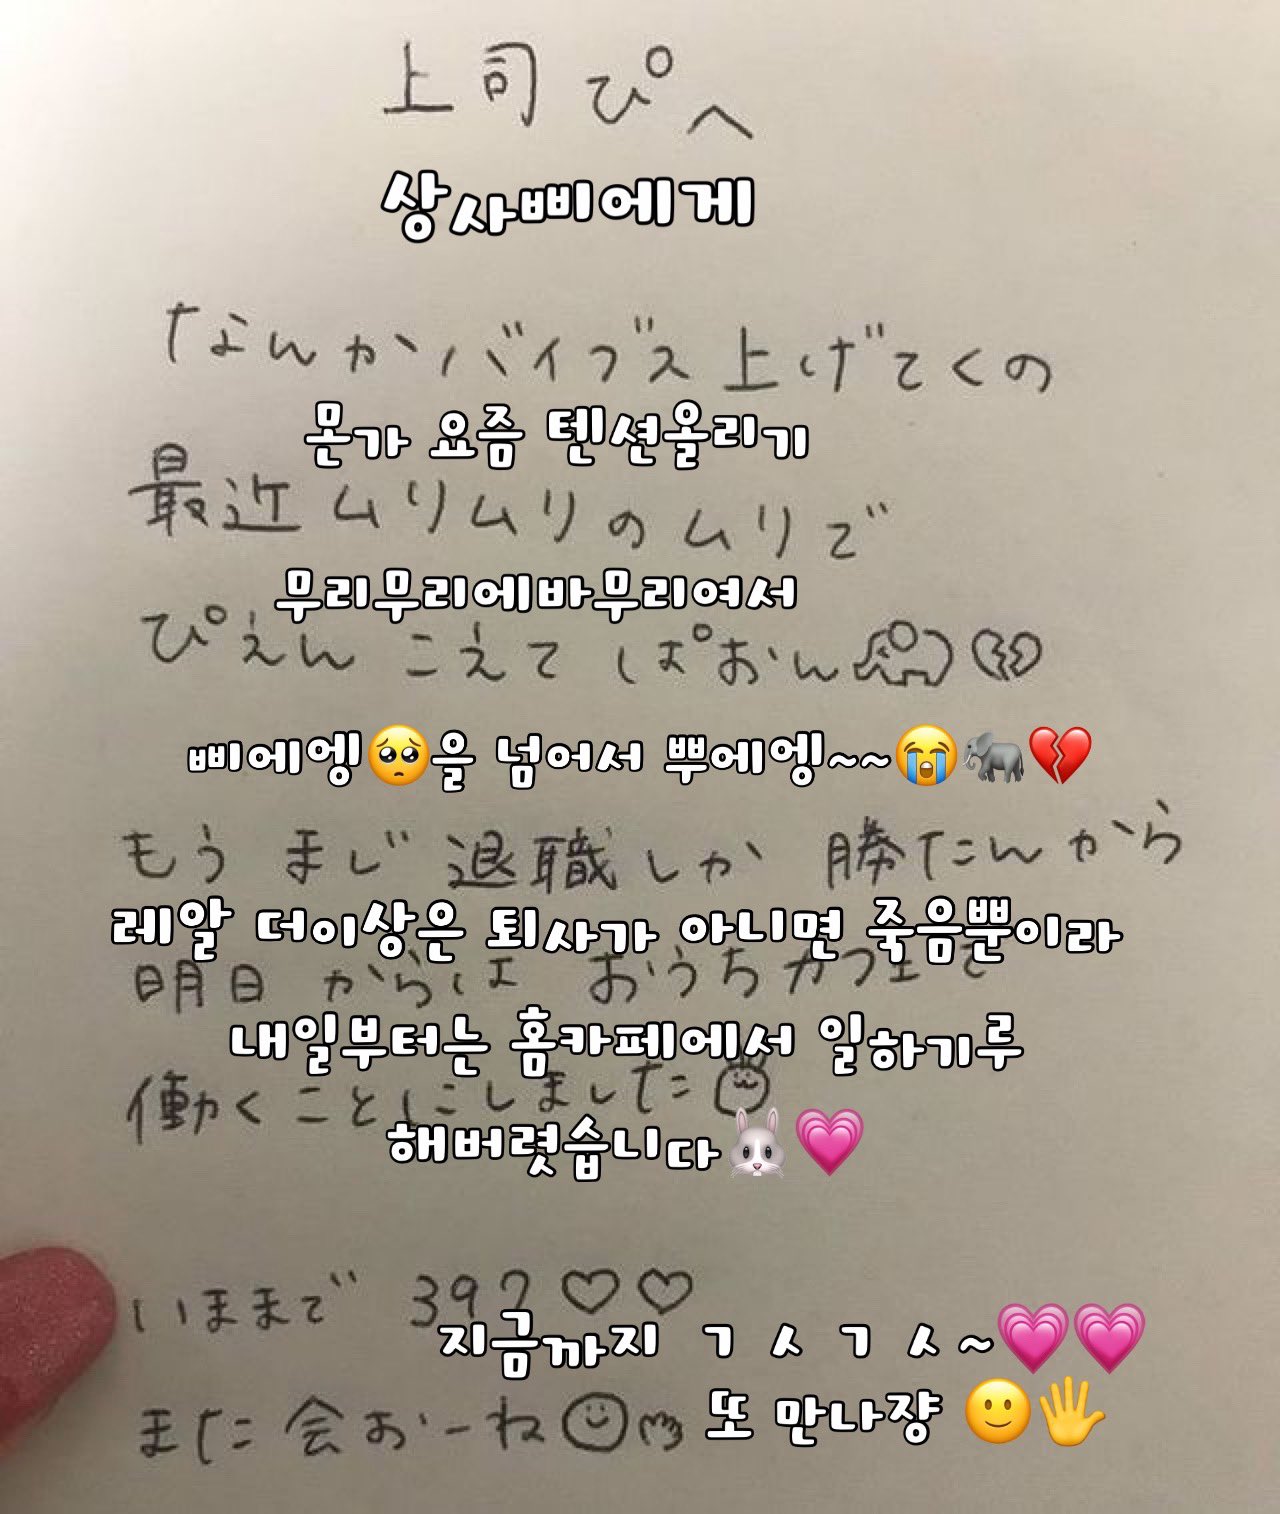 上司ぴへ
상사삐에게
なんかバイブス上げてくの
몬가 요즘 텐션올리기
最近ムリムリのムリで
무리무리에바무리여서
ぴえんこえてぱおん🐘💔
삐에엥🥺을 넘어서 뿌에엥~~😭🐘💔
もうまじ退職しか勝たんから
레알 더이상은 퇴사가 아니면 죽음뿐이라
明日からはおうちカフェで
내일부터는 홈카페에서 일하기루
働くことにしました
해버렷습니다🐰💗
いままで 39? ♡♡
지금까지 ㄱㅅㄱㅅ~💗💗
また会おーね
또 만나쟝 🙂🖐